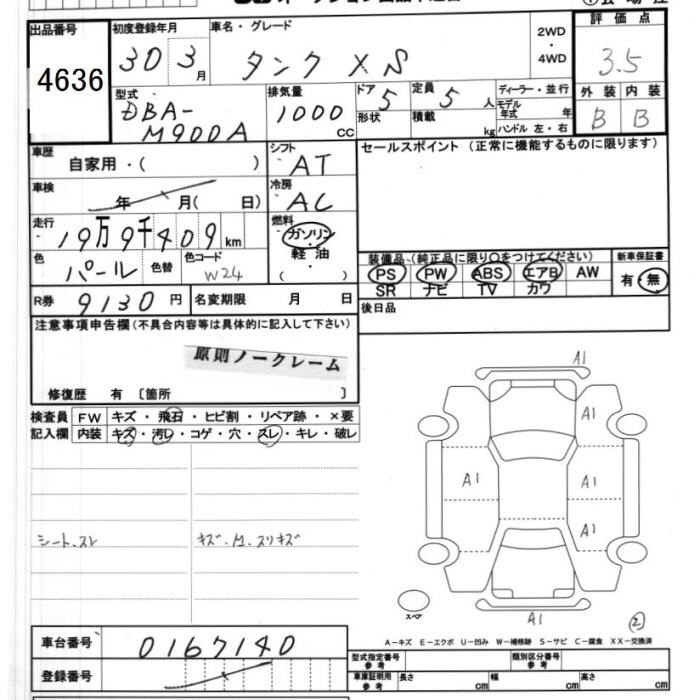 出品番号
4636
初度登録年月
30 3月
車名・グレード
タンク XS
2WD
・
4WD
評価点
3.5
外装 内装
B B
型式
DBA-
M900A
排気量
1000
CC
ドア
5
形状
定員
5 人
積載
kg
ディーラー・並行
モデル
年式 年
ハンドル 左・右
車歴
自家用・( )
シフト
AT
セールスポイント (正常に機能するものに限ります)
車検
年 月( 日)
冷房
AC
走行
19万9千409km
燃料
ガソリン
軽油
( )
色
パール
色替
色コード
W24
装備品(純正品に限り〇をつけてください)
PS PW ABS エアB AW
SR ナビ TV カワ
新車保証書
有・無
R券 9130 円
名変期限 月 日
後日品
注意事項申告欄(不具合内容等は具体的に記入して下さい)
原則ノークレーム
修復歴 有 〔箇所 〕
検査員
記入欄
FW キズ・飛石・ヒビ割・リペア跡・×要
内装 キズ・汚レ・コゲ・穴・スレ・キレ・破レ
シート、スレ
A1
A1
A1
A1
A1
A1
スペア
②
A－キズ E－エクボ U－凹み W－補修跡 S－サビ C－腐食 XX－交換済
車台番号 0167140
登録番号
型式指定番号
参考
類別区分番号
参考
車庫証明用
参考
長さ cm 幅 cm 高さ cm